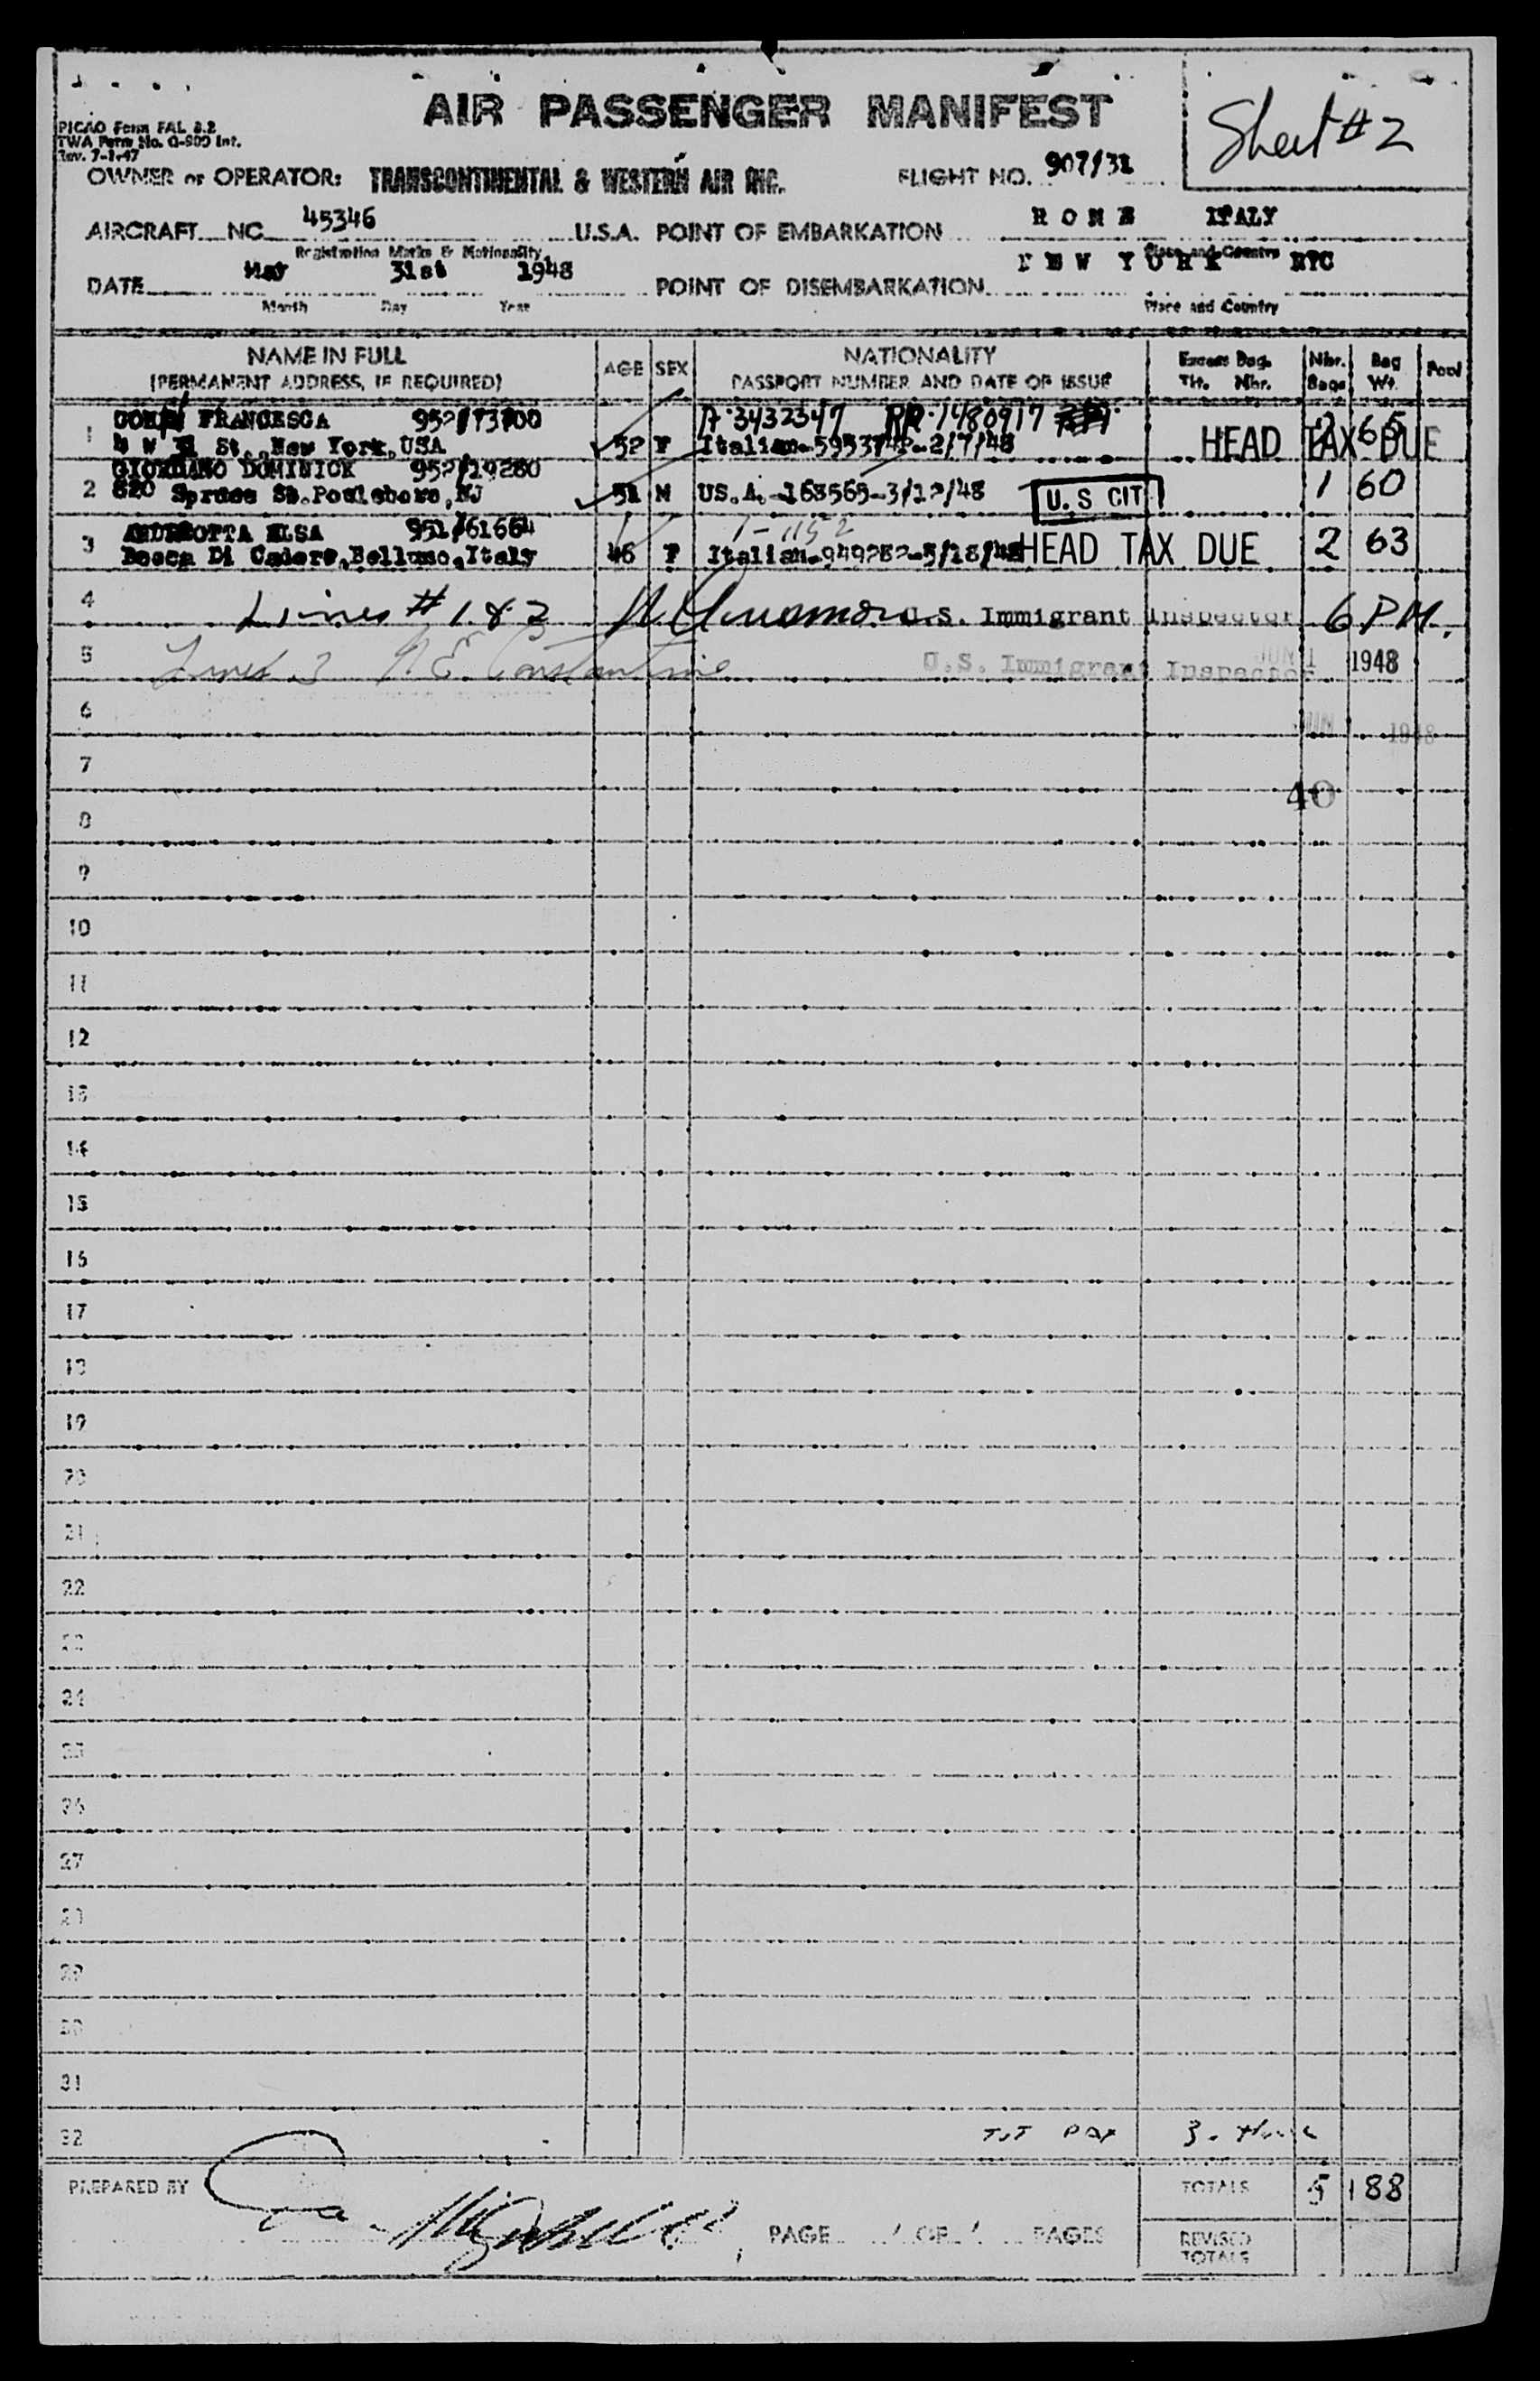 AIR PASSENGER MANIFEST
Sheet # 2
PICAO Form FAL 8.2
TWA Form No. O-800 Int.
Rev. 7-1-47
OWNER or OPERATOR: TRANSCONTINENTAL & WESTERN AIR INC. FLIGHT NO. 907/31
AIRCRAFT NC 45346 U.S.A. POINT OF EMBARKATION ROME ITALY
Registration Marks & Nationality Place and Country
DATE May 31st 1948 POINT OF DISEMBARKATION NEW YORK NYC
Month Day Year Place and Country
NAME IN FULL AGE SEX NATIONALITY Excess Bag. Nbr. Bag Pool
(PERMANENT ADDRESS, IF REQUIRED) PASSPORT NUMBER AND DATE OF ISSUE Tkt. Nbr. Bags Wt.
FRANCESCA 952/73700 A-3432347 RP-1480917
1 St., New York, USA 52 F Italian-2/7/48 HEAD TAX DUE 2 65
GIORDANO DOMINICK 952/19280
2 820 Spruce St. Paulsboro, NJ 51 M US.A.-168565-3/12/48 U.S CIT 1 60
ELSA 951/61664 1-1152
3 Di Cadore, Belluno, Italy 46 F Italian-949282-5/18/48 HEAD TAX DUE 2 63
4 Lines # 1 & 2 U.S. Immigrant Inspector 6 PM.
5 Lines 3 N. E. Constantine U.S. Immigrant Inspector JUN 1 1948
6 JUN 1948
7
40
8
9
10
11
12
13
14
15
16
17
18
19
20
21
22
23
24
25
26
27
28
29
30
31
32 TOT PAX 3.
PREPARED BY TOTALS 5 188
PAGE 1 OF 1 PAGES REVISED
TOTALS